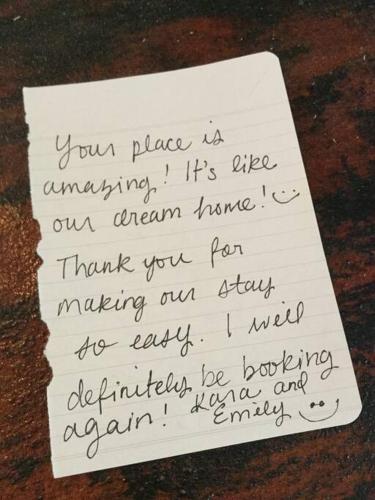 Your place is
amazing! It's like
our dream home! :)
Thank you for
making our stay
so easy. I will
definitely be booking
again! Kara and
Emily :)